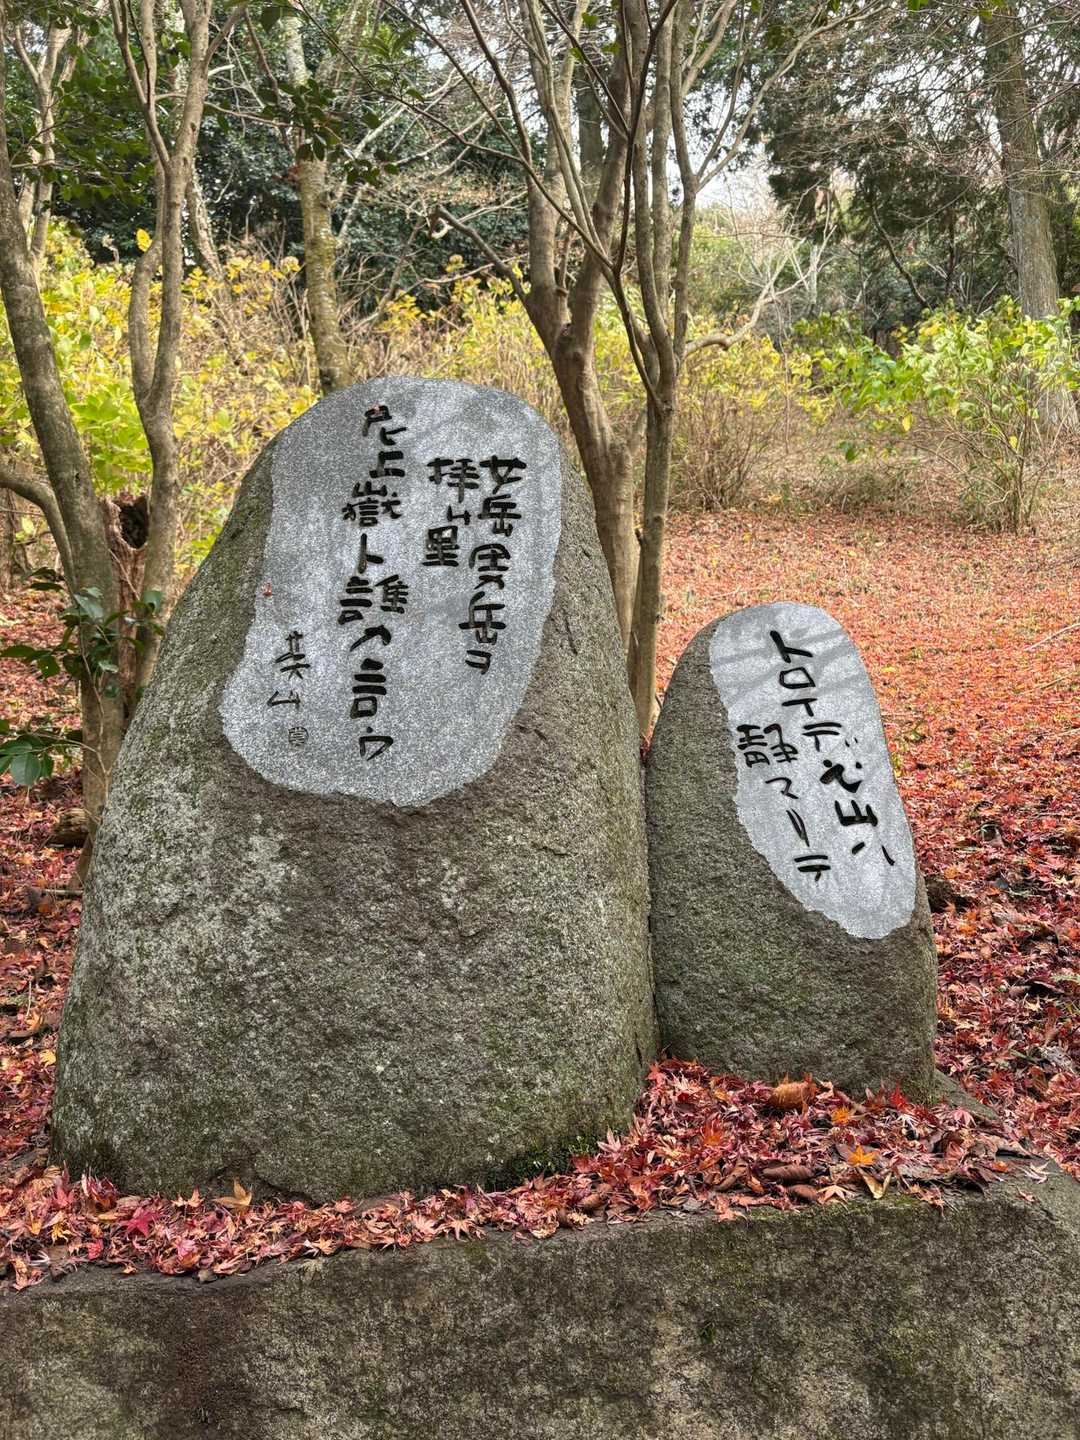 トロイデ火山ハ
静マリテ
女岳男岳ヲ
拝ム里
尼上嶽ト誰カ言ウ
英山